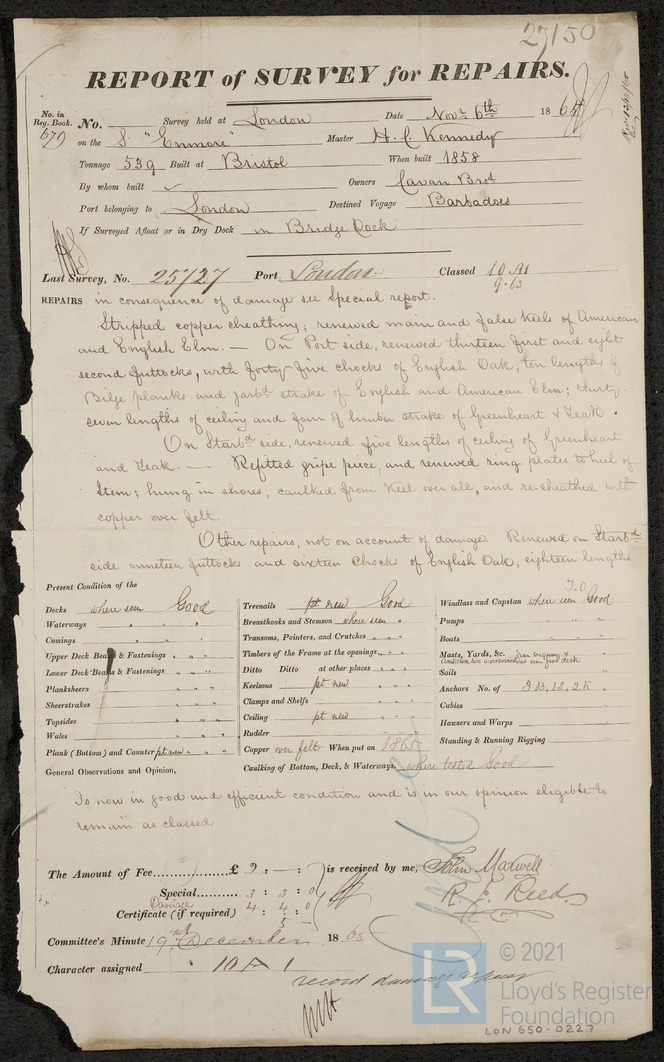 27150
REPORT of SURVEY for REPAIRS.
No. in Reg. Book. 679 No. Survey held at London Date Novr 6th 1865
on the S. "Enmore" Master H. C. Kennedy
Tonnage 539 Built at Bristol When built 1858
By whom built ✓ Owners Cavan Bros
Port belonging to London Destined Voyage Barbadoes
If Surveyed Afloat or in Dry Dock in Bridge Dock
Last Survey, No. 25727 Port London Classed 10 A1
9.63
REPAIRS in consequence of damage see Special report.
Stripped copper sheathing; renewed main and false Keels of American
and English Elm. — On Port side, renewed thirteen first and eight
second futtocks, with forty five chocks of English Oak; ten lengths of
Bilge planks and garbd strake of English and American Elm; thirty-
seven lengths of ceiling and four of limber strake of Greenheart & Teak.
On Starbd side, renewed five lengths of ceiling of Greenheart
and Teak. — Refitted gripe piece, and renewed ring plates to heel of
Stem; hung in shores, caulked from Keel over all, and re-sheathed with
copper over felt.
Other repairs, not on account of damage. Renewed on Starbd
side nineteen futtocks and sixteen Chocks of English Oak, eighteen lengths
T.O
Present Condition of the
Decks where seen Good
Waterways " "
Comings " "
Upper Deck Beams & Fastenings " " "
Lower Deck Beams & Fastenings " " "
Planksheers " " "
Sheerstrakes " " "
Topsides " " "
Wales " " "
Plank (Bottom) and Counter pt new " " "
Treenails pt new Good
Breasthooks and Stemson where seen "
Transoms, Pointers, and Crutches " " "
Timbers of the Frame at the openings " " "
Ditto Ditto at other places " " "
Keelsons pt new " " "
Clamps and Shelfs " " "
Ceiling pt new " " "
Rudder " " "
Copper over felt When put on 1865
Caulking of Bottom, Deck, & Waterways where tested Good
Windlass and Capstan where seen Good
Pumps " " "
Boats " " "
Masts, Yards, &c. from enquiry &
Condition, how ascertained as seen from deck
Sails
Anchors No. of 3 B, 1 S, 2 K
Cables
Hawsers and Warps
Standing & Running Rigging
General Observations and Opinion,
Is now in good and efficient condition and is in our opinion eligible to
remain as classed
The Amount of Fee £ 9 : — : is received by me, John Maxwell
Special 3 : 3 : 0 R. E. Reed
Damage
Certificate (if required) 4 : 4 : 0
5 —
Committee's Minute 19th December 1865
Character assigned 10 A 1
record damage repair
© 2021
LR Lloyd's Register
Foundation
LON 650-0227